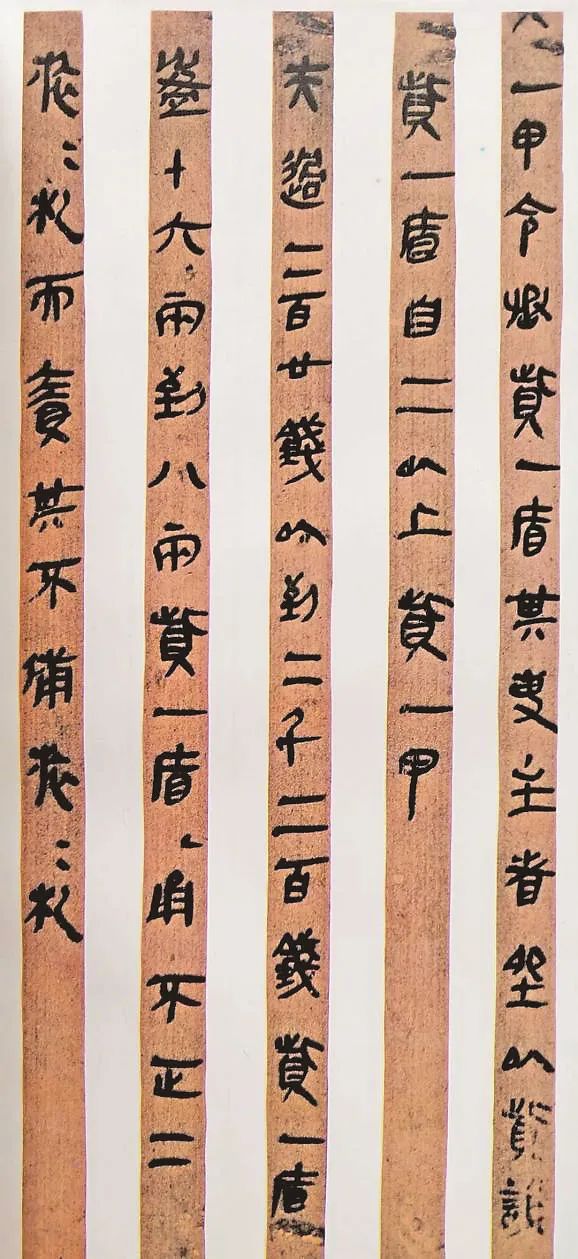 一甲令丞貲一盾其吏主者坐以貲誰
貲一盾自二以上貲一甲
夫過二百廿錢以到二千二百錢貲一盾
盈十六兩到八兩貲一盾甬不正二
旅=札而責其不備旅=札